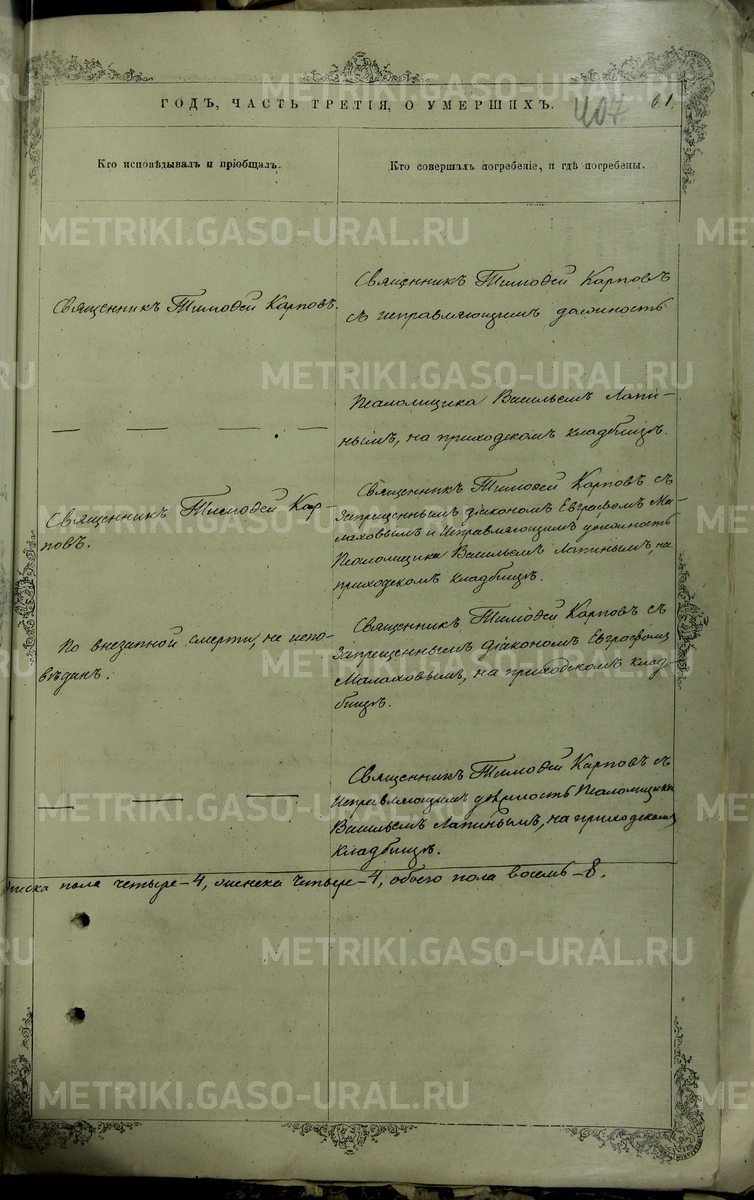 ГОДЪ, ЧАСТЬ ТРЕТІЯ, О УМЕРШИХЪ.
407
61.
Кто исповѣдывалъ и пріобщалъ.
Кто совершалъ погребеніе, и гдѣ погребены.
Священникъ Тимоѳей Карповъ.
Священникъ Тимоѳей Карповъ
съ исправляющимъ должность
— — — —
Псаломщика Васильемъ Лапи-
нымъ, на приходскомъ кладбищѣ.
Священникъ Тимоѳей Кар-
повъ.
Священникъ Тимоѳей Карповъ съ
Запрещеннымъ діакономъ Евграфомъ Ма-
лаховымъ и Исправляющимъ должность
Псаломщика Васильемъ Лапинымъ, на
приходскомъ кладбищѣ.
По внезапной смерти, не испо-
вѣданъ.
Священникъ Тимоѳей Карповъ съ
Запрещеннымъ Діакономъ Евграфомъ
Малаховымъ, на приходскомъ клад-
бищѣ.
— — —
Священникъ Тимоѳей Карповъ съ
Исправляющимъ должность Псаломщика
Васильемъ Лапинымъ, на приходскомъ
кладбищѣ.
пола четыре–4, женска четыре–4, обоего пола восемь–8.
METRIKI.GASO-URAL.RU
METRIKI.GASO-URAL.RU
METRIKI.GASO-URAL.RU
METRIKI.GASO-URAL.RU
METRIKI.GASO-URAL.RU
METRIKI.GASO-URAL.RU
METRIKI.GASO-URAL.RU
METRIKI.GASO-URAL.RU